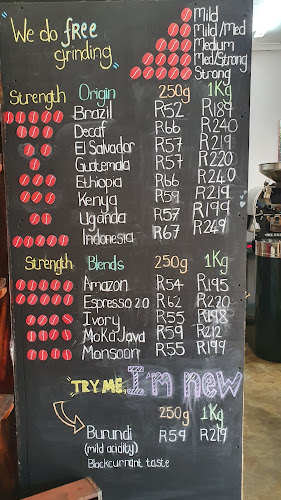 We do FREE grinding.
Mild
Mild/Med
Medium
Med/Strong
Strong
Strength Origin 250g 1Kg
Brazil R52 R189
Decaf R66 R240
El Salvador R57 R219
Guatemala R57 R220
Ethiopia R66 R240
Kenya R59 R219
Uganda R57 R199
Indonesia R67 R249
Strength Blends 250g 1Kg
Amazon R54 R195
Espresso 2.0 R62 R220
Ivory R55 R198
Moka Java R59 R212
Monsoon R55 R199
TRY ME, I'm new
250g 1Kg
Burundi R59 R219
(mild acidity)
Blackcurrant taste